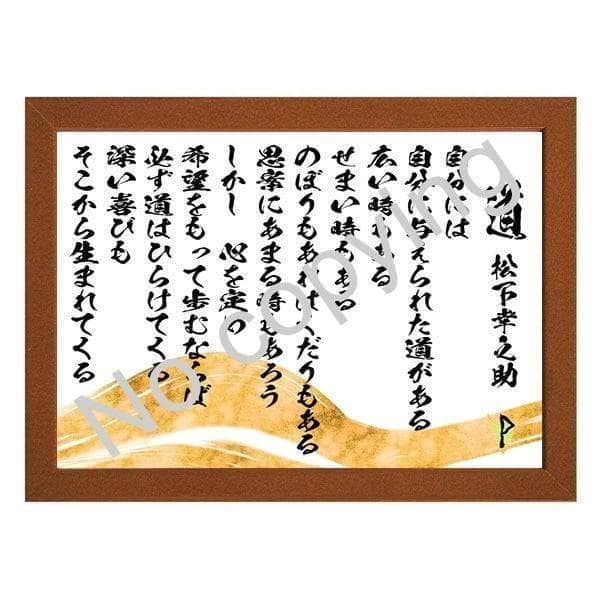 道 松下幸之助
自分には
自分に与えられた道がある
広い時もある
せまい時もある
のぼりもあればくだりもある
思案にあまる時もあろう
しかし 心を定め
希望をもって歩むならば
必ず道はひらけてくる
深い喜びも
そこから生まれてくる
No copying